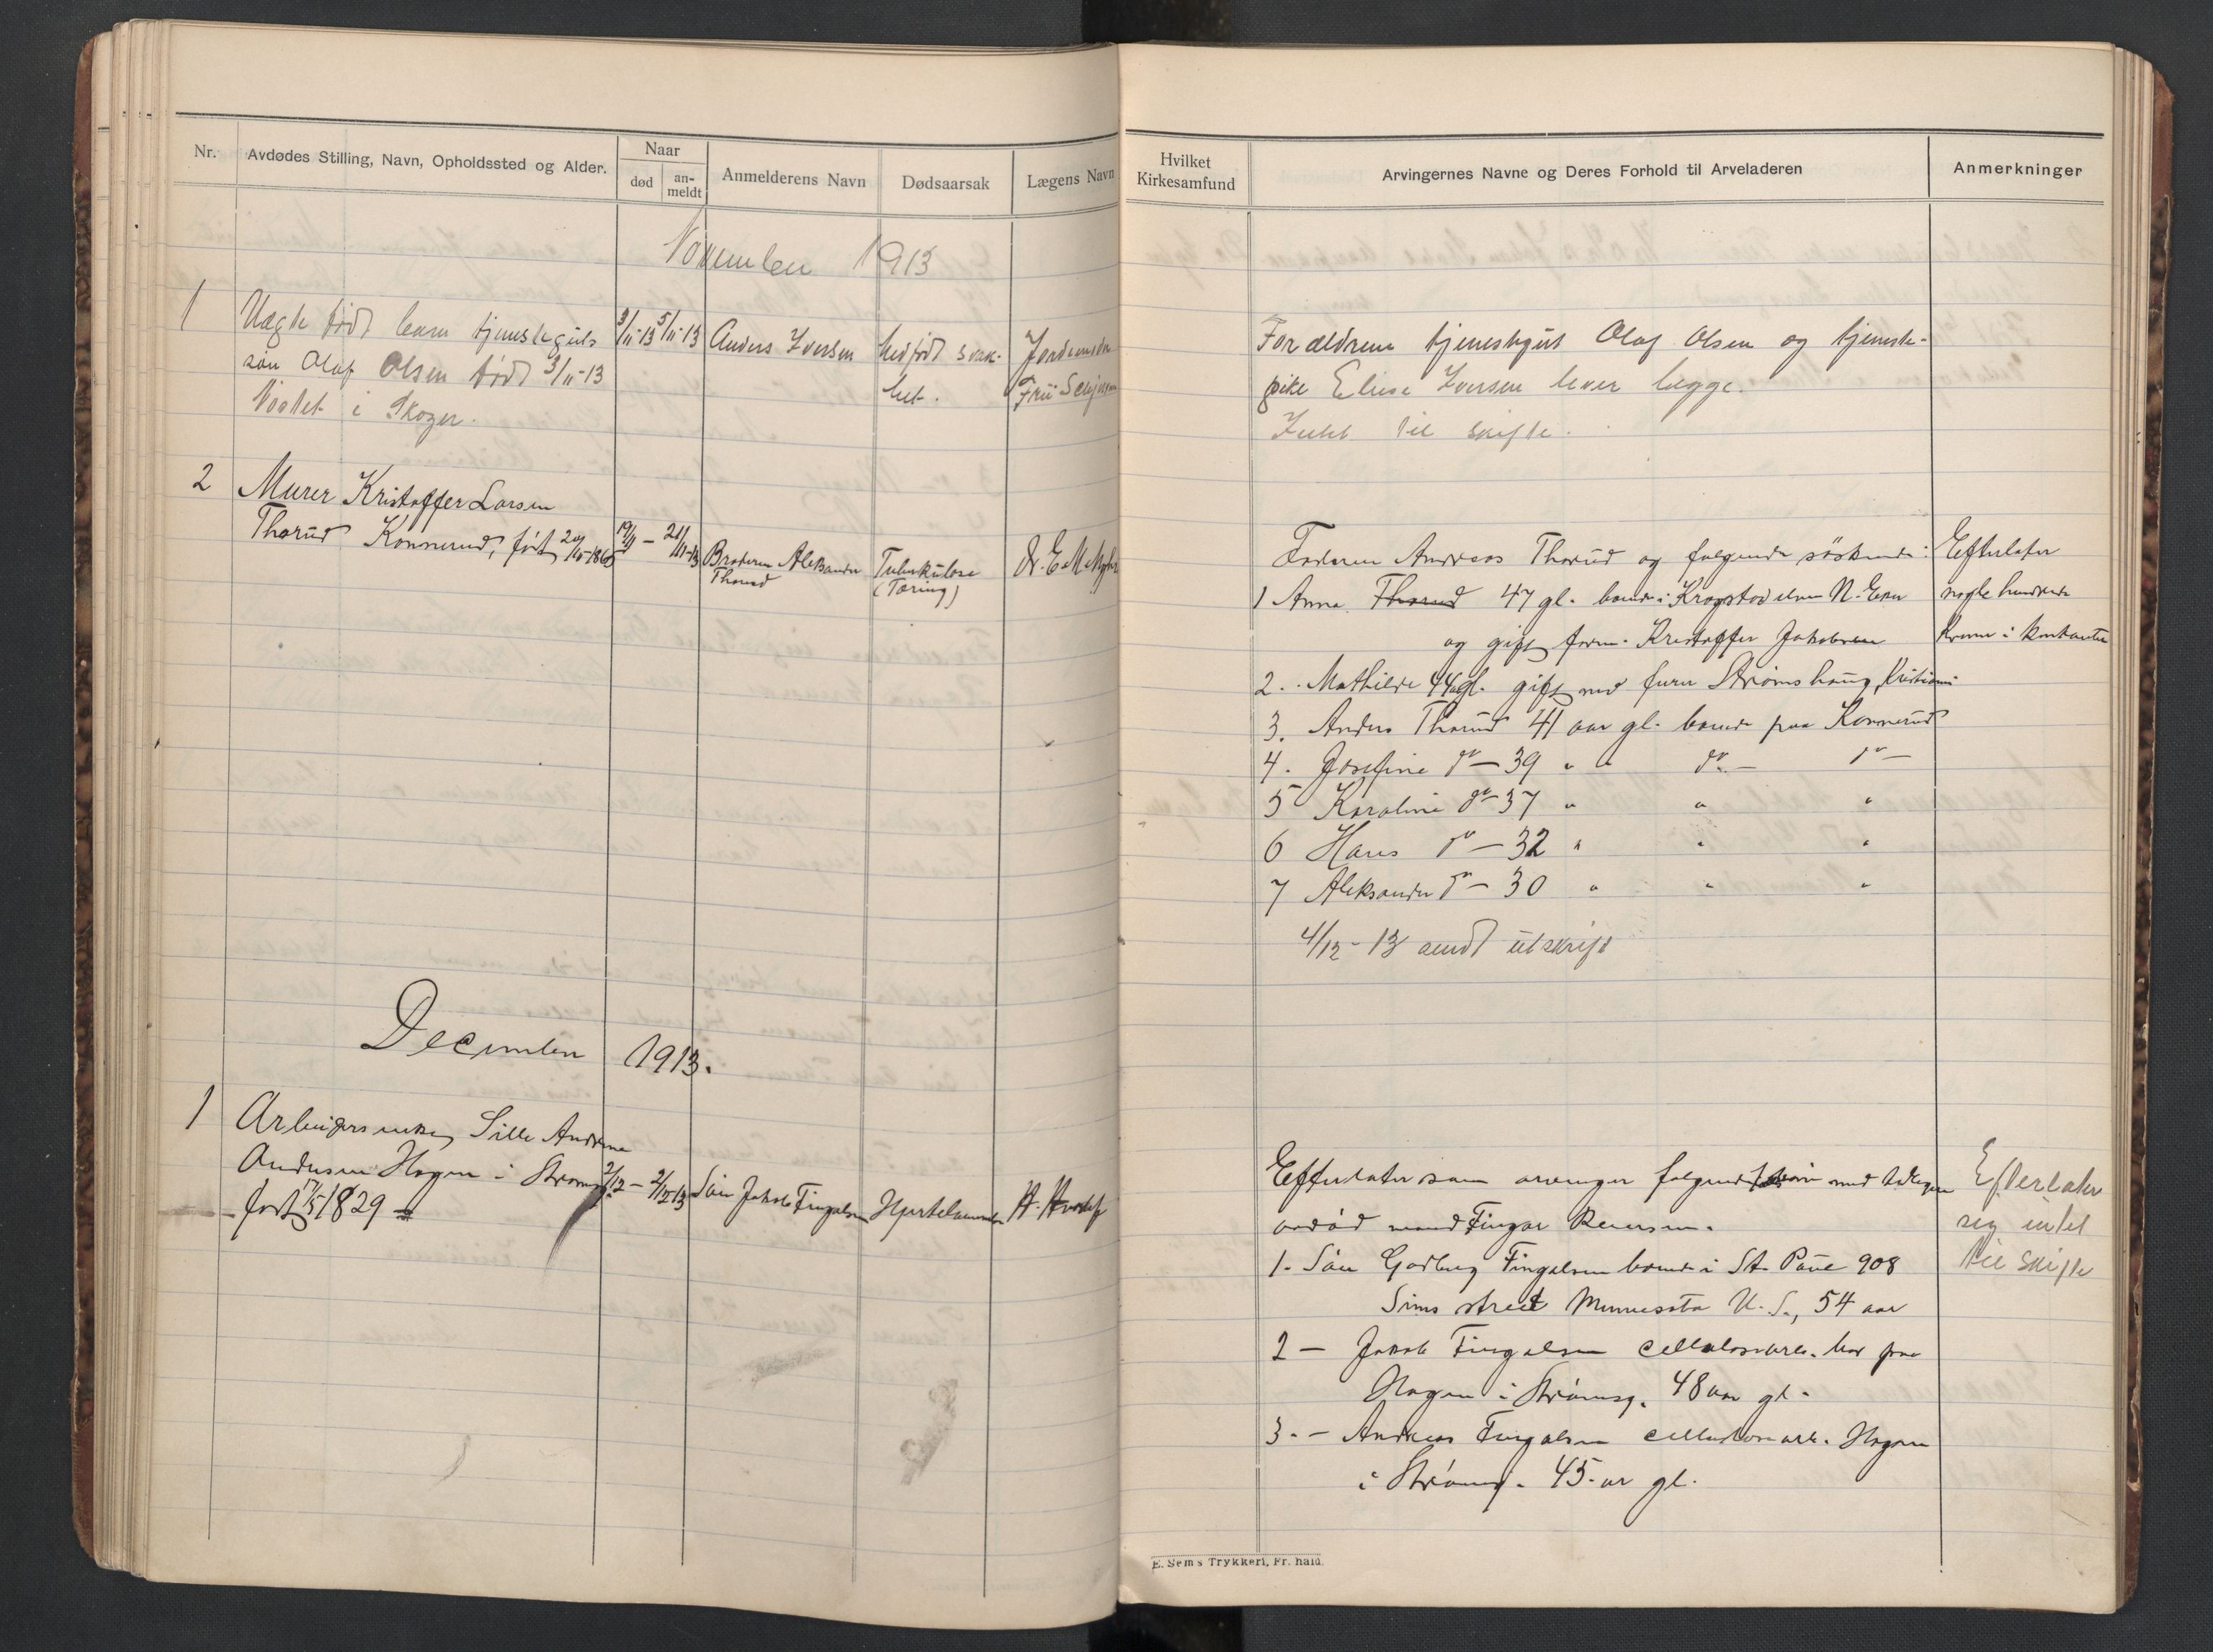 Nr.
Avdødes Stilling, Navn, Opholdssted og Alder.
Naar
død
an-
meldt
Anmelderens Navn
Dødsaarsak
Lægens Navn
November 1913
1
Uægte født barn tjenesteguts
søn Olaf Olsen født 3/11-13
i Skoger.
3/11-13 5/11-13
Anders Iversen
Medfødt svak-
het.
Jordemoder
2
Murer Kristoffer Larsen
Thorud Konnerud, født
19/11 - 21/11-13
Broderen Aleksander
Thorud
Tuberkulose
(Tæring)
Dr. E M
December 1913.
1
Arbeidersenke, Sille Andrea
Andersen Hagen i Strømsg.
født 17/5 1829
2/12 - 2/12-13
Søn Jakob Fingalsen
H.
Hvilket
Kirkesamfund
Arvingernes Navne og Deres Forhold til Arveladeren
Anmerkninger
Forældrene tjenestegut Olaf Olsen og tjeneste-
pike Elise Iversen lever begge.
Intet til skifte.
Faderen Andreas Thorud og følgende søskende:
1 Anna Thorud 47 gl. boende i Krogstadelven N. Eker
og gift form. Kristoffer Jakobsen
2. Mathilde 44 gl. gift med Strømshaug, Kristiania
3. Anders Thorud 41 aar gl. boende paa Konnerud
4. Josefine do - 39 " " do - do -
5 Karoline do - 37 " " "
6 Hans do - 32 " " "
7 Aleksander do - 30 " " "
4/12-13 sendt utskrift
Efterlater
nogle hundrede
kroner i kontanter
Efterlater som arvinger følgende med tidligere
avdød mand Fingar
1. Søn Gødberg Fingalsen boende i St. Paue 908
Sims street Minnesota U. S., 54 aar
2 - Jakob Fingalsen cellulosearb. bor paa
Hagen i Strømsg. 48 aar gl.
3. - Andreas Fingalsen cellulosearb. Hagen
i Strømsg. 45 ar gl.
Efterlater
sig intet
til skifte
E. Sem's Trykkeri, Fr. hald.